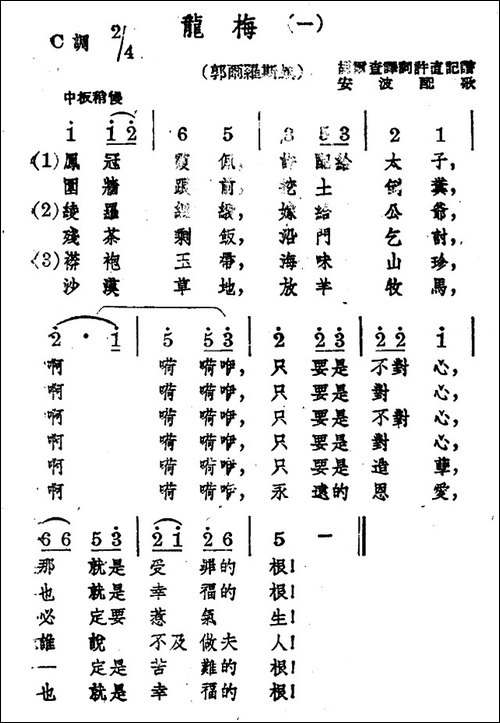 龍梅（一）
C調 2/4
（郭爾羅斯旗）
胡爾查譯詞許直記譜
安波配歌
中板稍慢
i i2 6 5 3 53 2 1
(1) 鳳冠霞佩，許配給太子，
圍牆跟前，挖土劍糞，
(2) 綾羅綢緞，嫁給公爺，
殘茶剩飯，沿門乞討，
(3) 襟袍玉帶，海味山珍，
沙漠草地，放羊牧馬，
2 · 1 5 53 2 23 22 i
啊 嗬嗬咿，只要是不對心，
啊 嗬嗬咿，只要是對心，
啊 嗬嗬咿，只要是不對心，
啊 嗬嗬咿，只要是對心，
啊 嗬嗬咿，只要是造孽，
啊 嗬嗬咿，永遠的恩愛，
66 53 21 26 5 －
那就是受罪的根！
也就是幸福的根！
必定要惹氣生！
誰說不及做夫人！
一定是苦難的根！
也就是幸福的根！